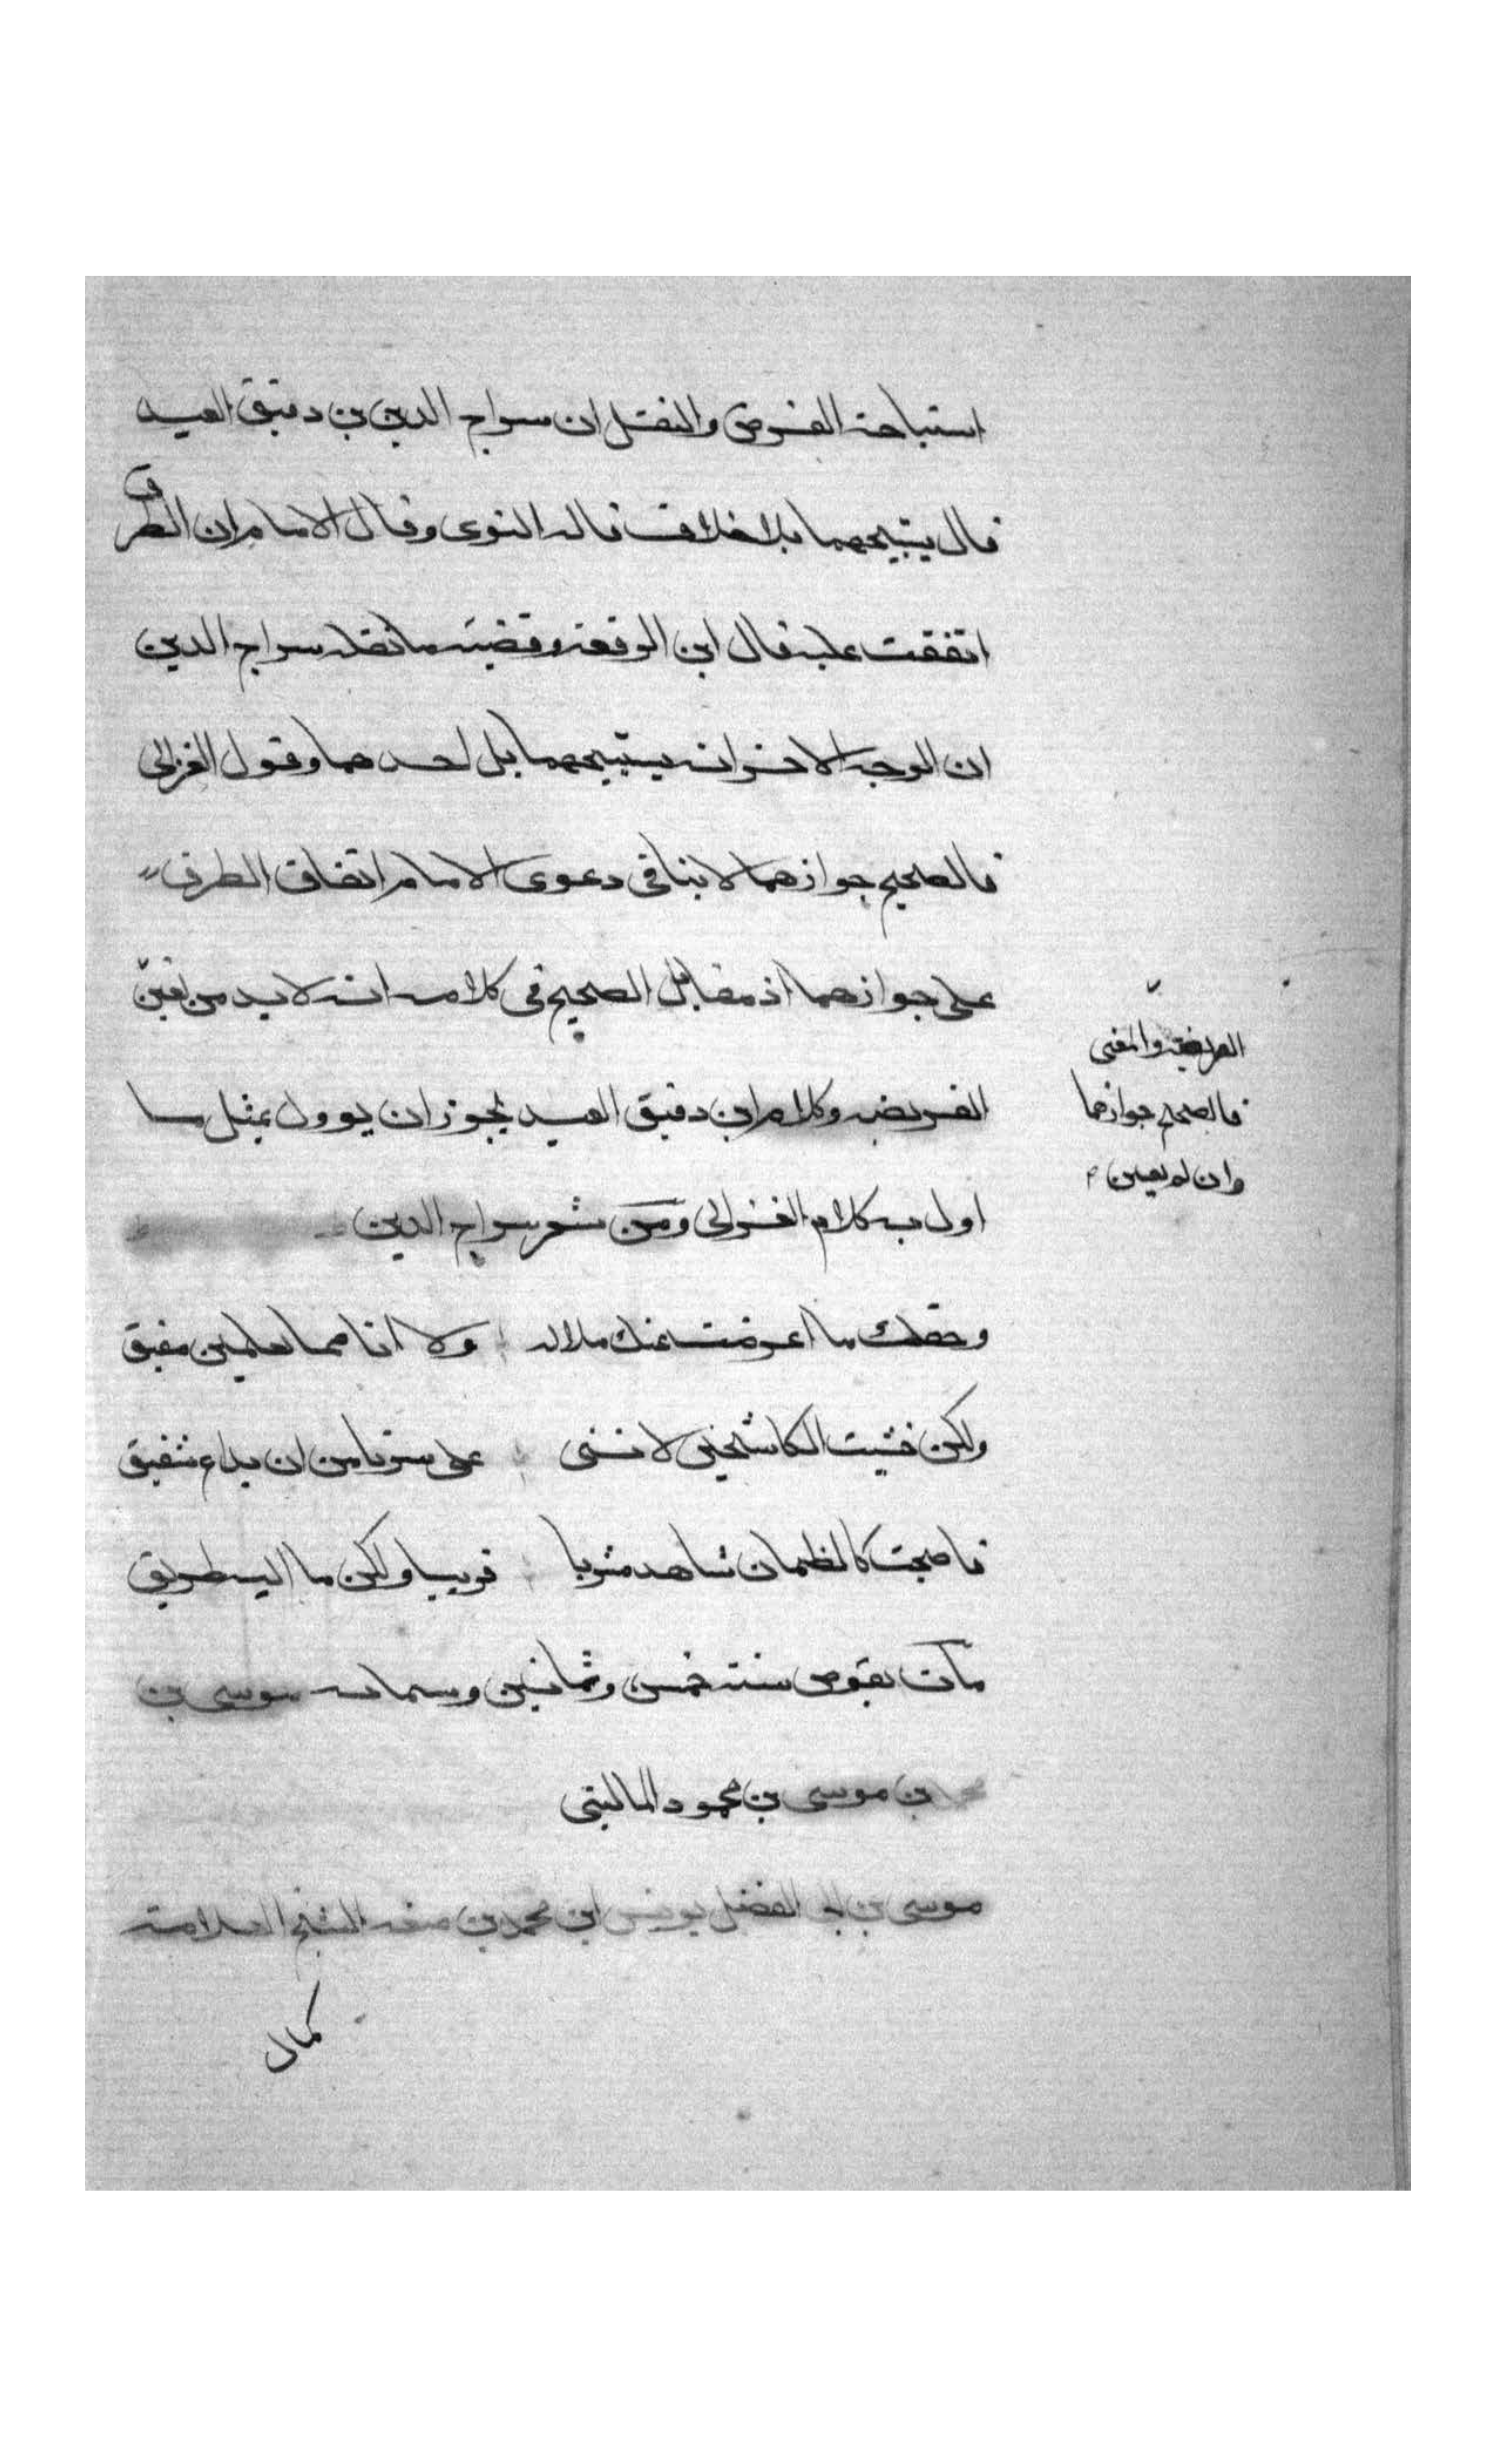 استباحة الفرض والنفل ان سراج الدين بن دقيق العيد
قال يستبيحهما بلا خلاف قاله النووى وقال الامام ان الطرق
اتفقت عليه قال ابن الرفعة وقضية ما نقله سراج الدين
ان الوجه الاخر انه يستبيحهما بل احدهما وقول الغزالى
فالصحيح جوازهما لا ينافى دعوى الامام اتفاق الطرق
على جوازهما اذ مقابل الصحيح فى كلامه انه لا بد من تعين
الفريضه وكلام ابن دقيق العيد يجوز ان يوول بمثل ما
اول به كلام الغزالى ومن شعر سراج الدين
وحقك ما اعرضت عنك ملاله ولا انا مما تعلمين مفيق
ولكن خشيت الكاشحين لاننى على سرنا من ان يذاع شفيق
فاصبحت كالظمان شاهد مشربا قريبا ولكن ما اليه طريق
مات بقوص سنة خمس وثمانين وستمائه موسى بن
محمد بن موسى بن محمود
موسى بن ابى الفضل يونس ابن محمد بن منعه الشيخ العلامة
كمال
الفريضه والمعنى
فالصحيح جوازهما
وان لم يعين